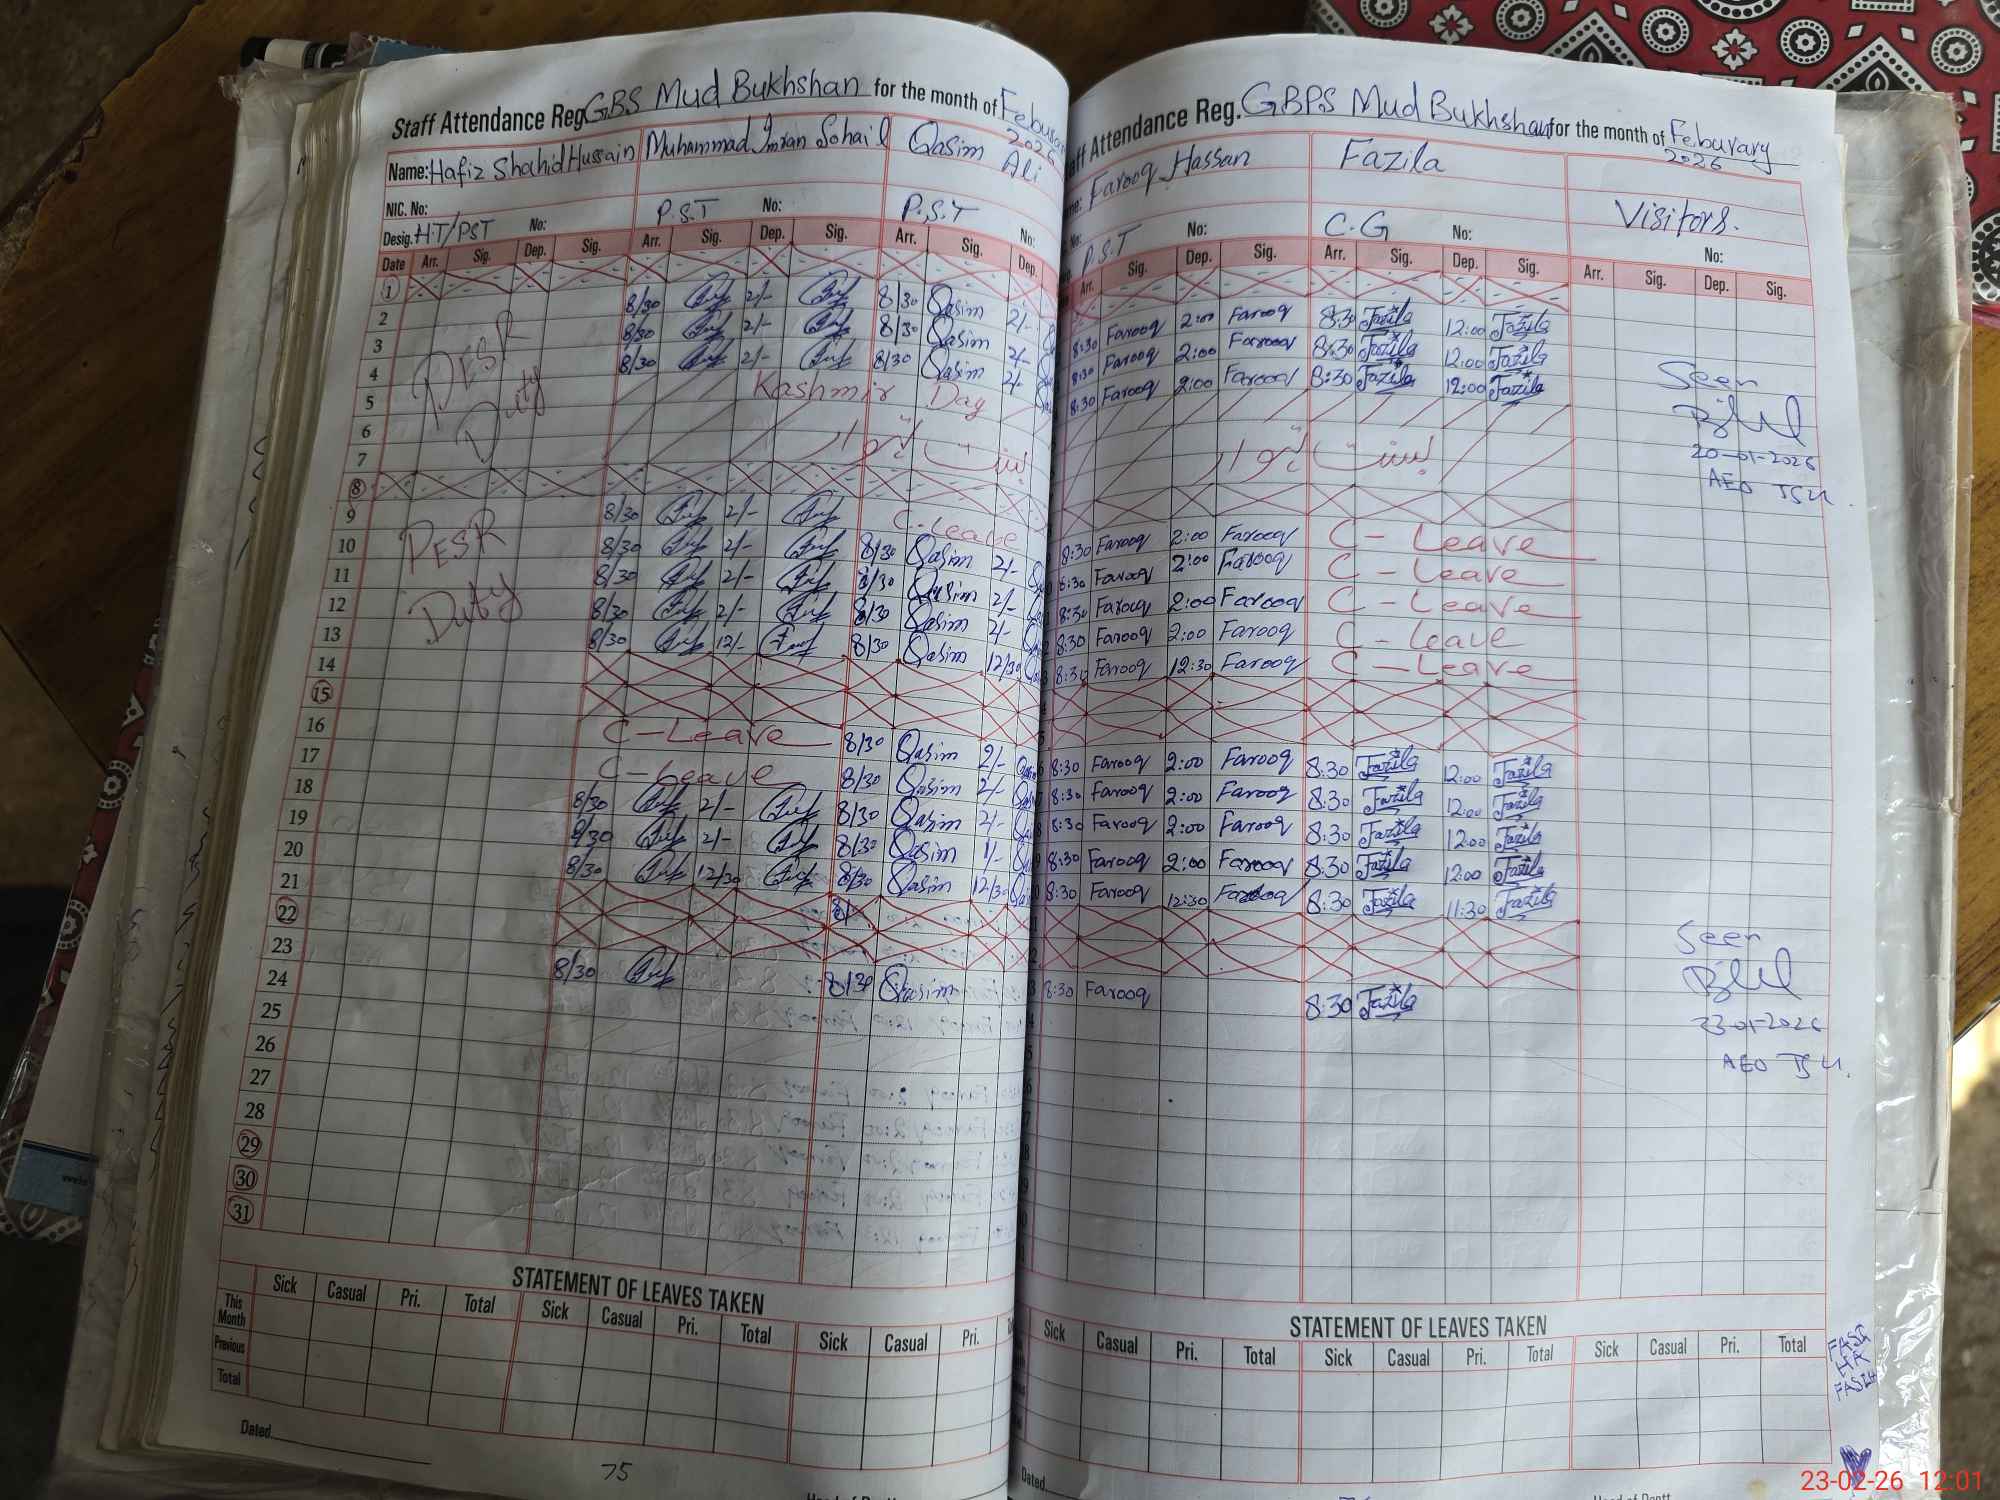 Staff Attendance Reg. GBS Mud Bukhshan for the month of Feburary 2026
Name: Hafiz Shahid Hussain Muhammad Imran Sohail Qasim Ali
NIC. No:
Desig. HT/PST No: P.S.T No: P.S.T No:
Date Arr. Sig. Dep. Sig. Arr. Sig. Dep. Sig. Arr. Sig. Dep.
1
2 8/30 2/- 8/30 Qasim 2/-
3 8/30 2/- 8/30 Qasim 2/-
4 8/30 2/- 8/30 Qasim 2/-
PESR Duty
5 Kashmir Day
6 بسنت تہوار
7
8
9 8/30 2/- C-Leave
10 8/30 2/- 8/30 Qasim 2/-
PESR Duty
11 8/30 2/- 8/30 Qasim 2/-
12 8/30 2/- 8/30 Qasim 2/-
13 8/30 12/- 8/30 Qasim 12/30
14
15
16 C-Leave 8/30 Qasim 2/-
17 C-Leave 8/30 Qasim 2/-
18 8/30 2/- 8/30 Qasim 2/-
19 8/30 2/- 8/30 Qasim 1/-
20 8/30 12/30 8/30 Qasim 12/30
21 8/
22
23 8/30 8/30 Qasim
24
25
26
27
28
29
30
31
STATEMENT OF LEAVES TAKEN
Sick Casual Pri. Total Sick Casual Pri. Total Sick Casual Pri.
This Month
Previous
Total
Dated
75
Staff Attendance Reg. GBPS Mud Bukhshan for the month of Feburary 2026
Farooq Hassan Fazila
Visitors.
P.S.T No: C.G No: No:
Arr. Sig. Dep. Sig. Arr. Sig. Dep. Sig. Arr. Sig. Dep. Sig.
8:30 Farooq 2:00 Farooq 8:30 Fazila 12:00 Fazila
8:30 Farooq 2:00 Farooq 8:30 Fazila 12:00 Fazila
8:30 Farooq 2:00 Farooq 8:30 Fazila 12:00 Fazila
Seen
20-01-2026
AEO
بسنت تہوار
8:30 Farooq 2:00 Farooq C-Leave
8:30 Farooq 2:00 Farooq C-Leave
8:30 Farooq 2:00 Farooq C-Leave
8:30 Farooq 2:00 Farooq C-Leave
8:30 Farooq 12:30 Farooq C-Leave
8:30 Farooq 2:00 Farooq 8:30 Fazila 12:00 Fazila
8:30 Farooq 2:00 Farooq 8:30 Fazila 12:00 Fazila
8:30 Farooq 2:00 Farooq 8:30 Fazila 12:00 Fazila
8:30 Farooq 2:00 Farooq 8:30 Fazila 12:00 Fazila
8:30 Farooq 12:30 Farooq 8:30 Fazila 11:30 Fazila
8:30 Farooq 8:30 Fazila
Seen
23-01-2026
AEO
STATEMENT OF LEAVES TAKEN
Sick Casual Pri. Total Sick Casual Pri. Total Sick Casual Pri. Total
Dated
23-02-26 12:01